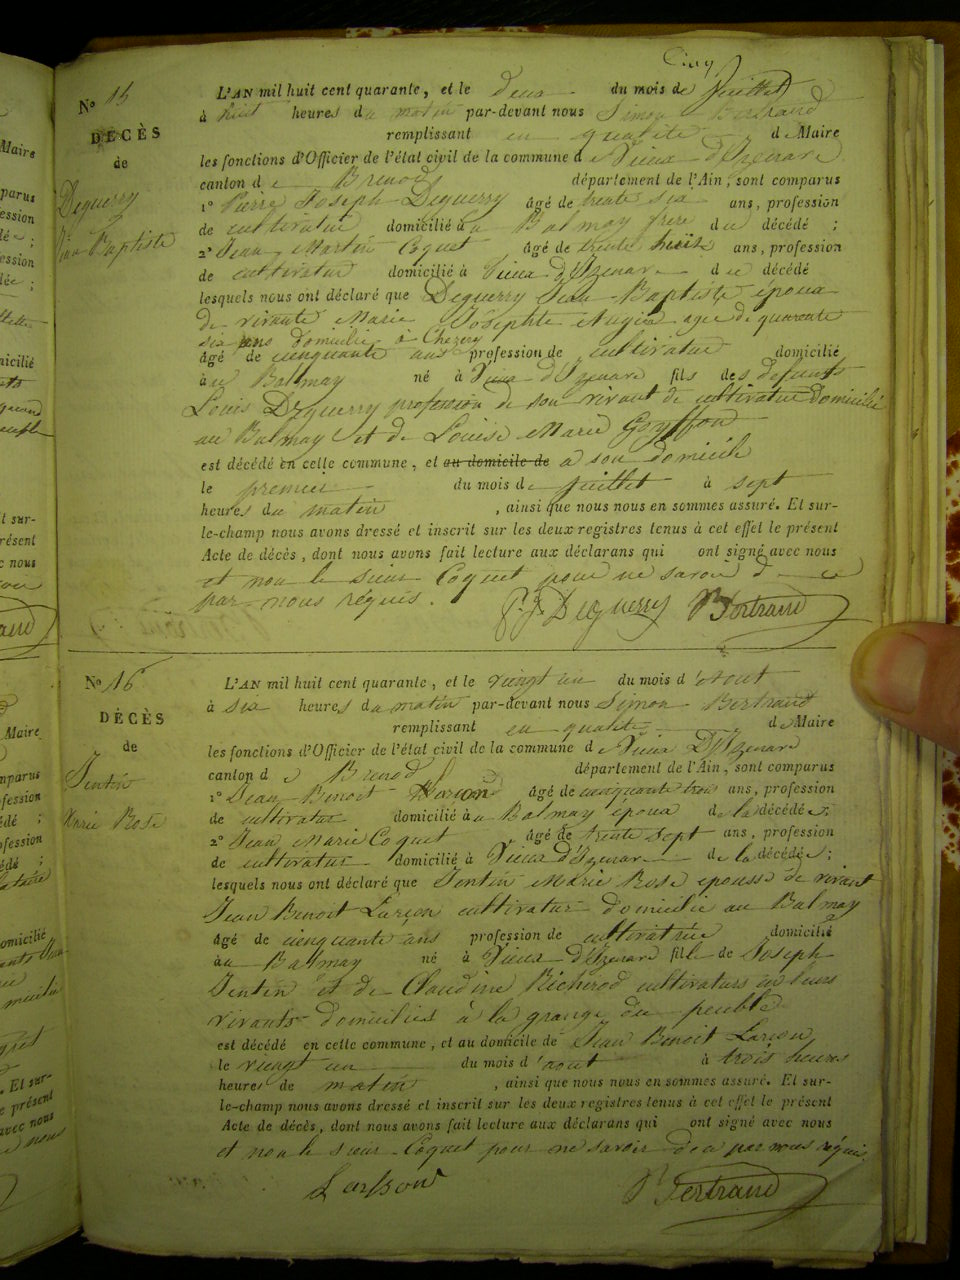 Cinq
N° 15
DÉCÈS
de
Deguerry
Jean Baptiste
L'AN mil huit cent quarante, et le deux du mois de Juillet
à huit heures du matin par-devant nous Simon Bertrand
remplissant en qualité de Maire
les fonctions d'Officier de l'état civil de la commune de Vieux d'Izenave
canton de Brenod département de l'Ain, sont comparus
1° Pierre Joseph Deguerry âgé de trente six ans, profession
de cultivateur domicilié au Balmay frere du décédé ;
2° Jean Martin Coquet âgé de trente huit ans, profession
de cultivateur domicilié à Vieux d'Izenave du décédé
lesquels nous ont déclaré que Deguerry Jean-Baptiste époux
de vivante Marie Josephte agée de quarente
six ans domicilié à Chezery
âgé de cinquante ans profession de cultivateur domicilié
au Balmay né à Vieux d'Izenave fils des defunts
Louis Deguerry profession de son vivant de cultivateur domicilié
au Balmay et de Louise Marie Goyffon
est décédé en celle commune, et au domicile de a son domicile
le premier du mois de Juillet à sept
heures du matin , ainsi que nous nous en sommes assuré. Et sur-
le-champ nous avons dressé et inscrit sur les deux registres tenus à cet effet le présent
Acte de décès, dont nous avons fait lecture aux déclarans qui ont signé avec nous
et non le sieur Coquet pour ne savoir de ce
par nous réquis.
P. J. Deguerry Bertrand
N° 16
DÉCÈS
de
Jentin
Marie Rose
L'AN mil huit cent quarante, et le vingt un du mois d'Aout
à six heures du matin par-devant nous Simon Bertrand
remplissant en qualité de Maire
les fonctions d'Officier de l'état civil de la commune de Vieux D'Izenave
canton de Brenod département de l'Ain, sont comparus
1° Jean Benoit Larçon âgé de cinquante trois ans, profession
de cultivateur domicilié au Balmay époux de la décédée ;
2° Jean Marie Coquet âgé de trente sept ans, profession
de cultivateur domicilié à Vieux d'Izenave de la décédée ;
lesquels nous ont déclaré que Jentin Marie Rose épouse de vivant
Jean Benoit Larçon cultivateur domicilié au Balmay
âgé de cinquante ans profession de cultivatrice domicilié
au Balmay né à Vieux d'Izenave fille de Joseph
Jentin et de Claudine Richerod cultivateurs de leurs
vivants domiciliés à la grange du peuble
est décédé en celle commune, et au domicile de Jean Benoit Larçon
le vingt un du mois d'aout à trois heures
heures de matin , ainsi que nous nous en sommes assuré. Et sur-
le-champ nous avons dressé et inscrit sur les deux registres tenus à cet effet le présent
Acte de décès, dont nous avons fait lecture aux déclarans qui ont signé avec nous
et non le sieur Coquet pour ne savoir de ce par nous réquis.
Larson Bertrand